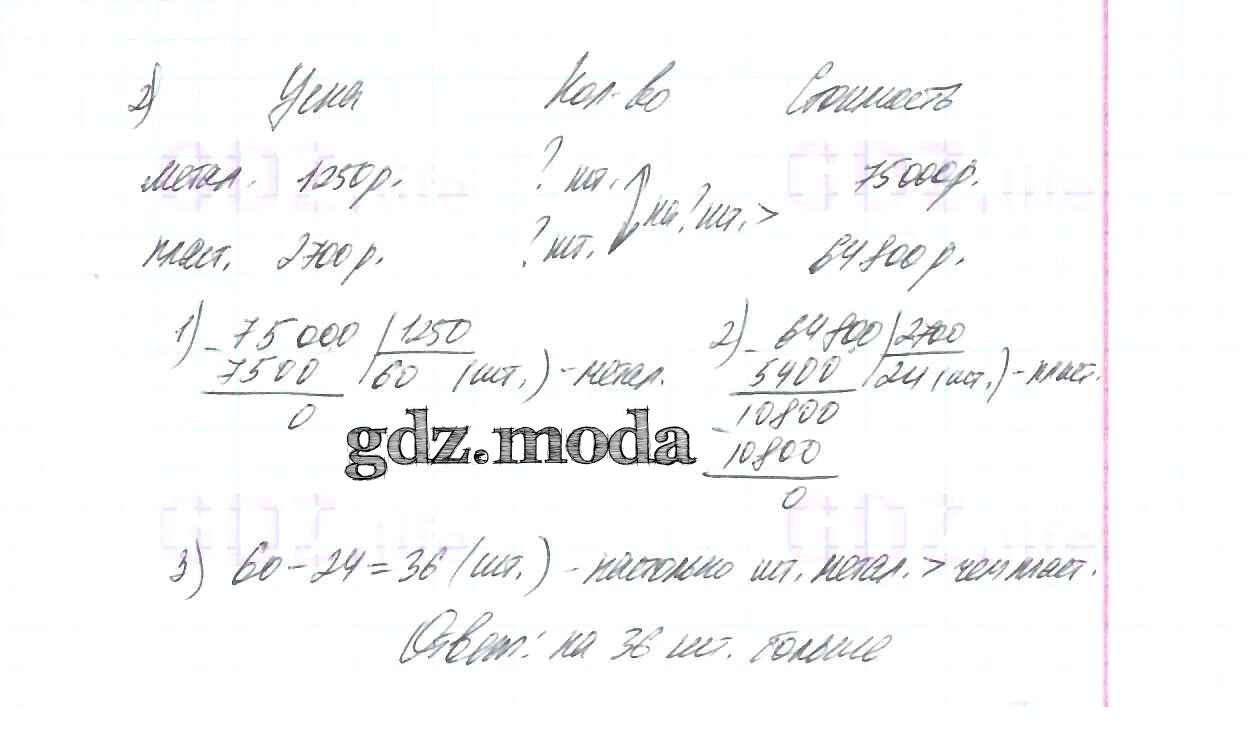 2) Цена Кол-во Стоимость
метал. 1250р. ? шт. 75000р.
на ? шт. >
пласт. 2700р. ? шт. 64800р.
1) - 75000 | 1250 2) - 64800 | 2700
7500 | 60 (шт.) - метал. 5400 | 24 (шт.) - пласт.
0 - 10800
10800
0
gdz.moda
3) 60 - 24 = 36 (шт.) - настолько шт. метал. > чем пласт.
Ответ: на 36 шт. больше